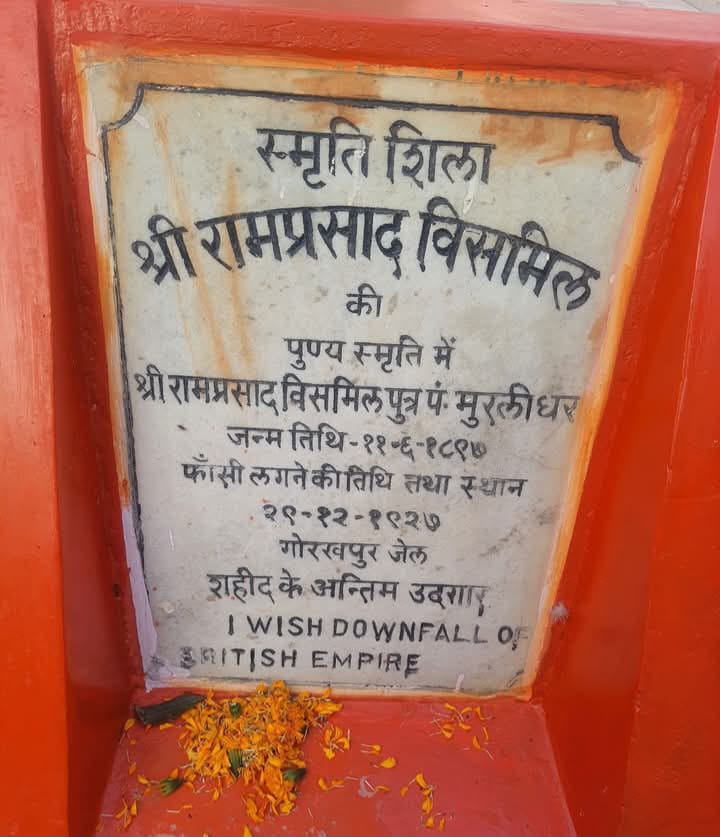 स्मृति शिला
श्री रामप्रसाद विसामिल
की
पुण्य स्मृति में
श्री रामप्रसाद विसमिल पुत्र पं. मुरलीधर
जन्म तिथि - ११-६-१८९७
फाँसी लगने की तिथि तथा स्थान
२९-१२-१९२७
गोरखपुर जेल
शहीद के अन्तिम उदगार
I WISH DOWNFALL OF
BRITISH EMPIRE